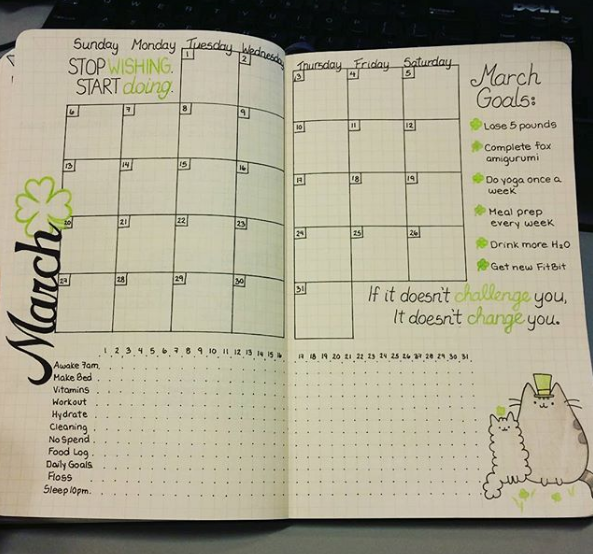 DELL
Sunday Monday Tuesday Wednesday Thursday Friday Saturday
STOP WISHING.
START doing.
1 2 3 4 5
6 7 8 9 10 11 12
13 14 15 16 17 18 19
20 21 22 23 24 25 26
27 28 29 30 31
March
March
Goals:
Lose 5 pounds
Complete fox
amigurumi
Do yoga once a
week
Meal prep
every week
Drink more H2O
Get new FitBit
If it doesn't challenge you,
It doesn't change you.
1 2 3 4 5 6 7 8 9 10 11 12 13 14 15 16 17 18 19 20 21 22 23 24 25 26 27 28 29 30 31
Awake 7am.
Make Bed
Vitamins
Workout
Hydrate
Cleaning
No Spend
Food Log
Daily Goals
Floss
Sleep 10pm.